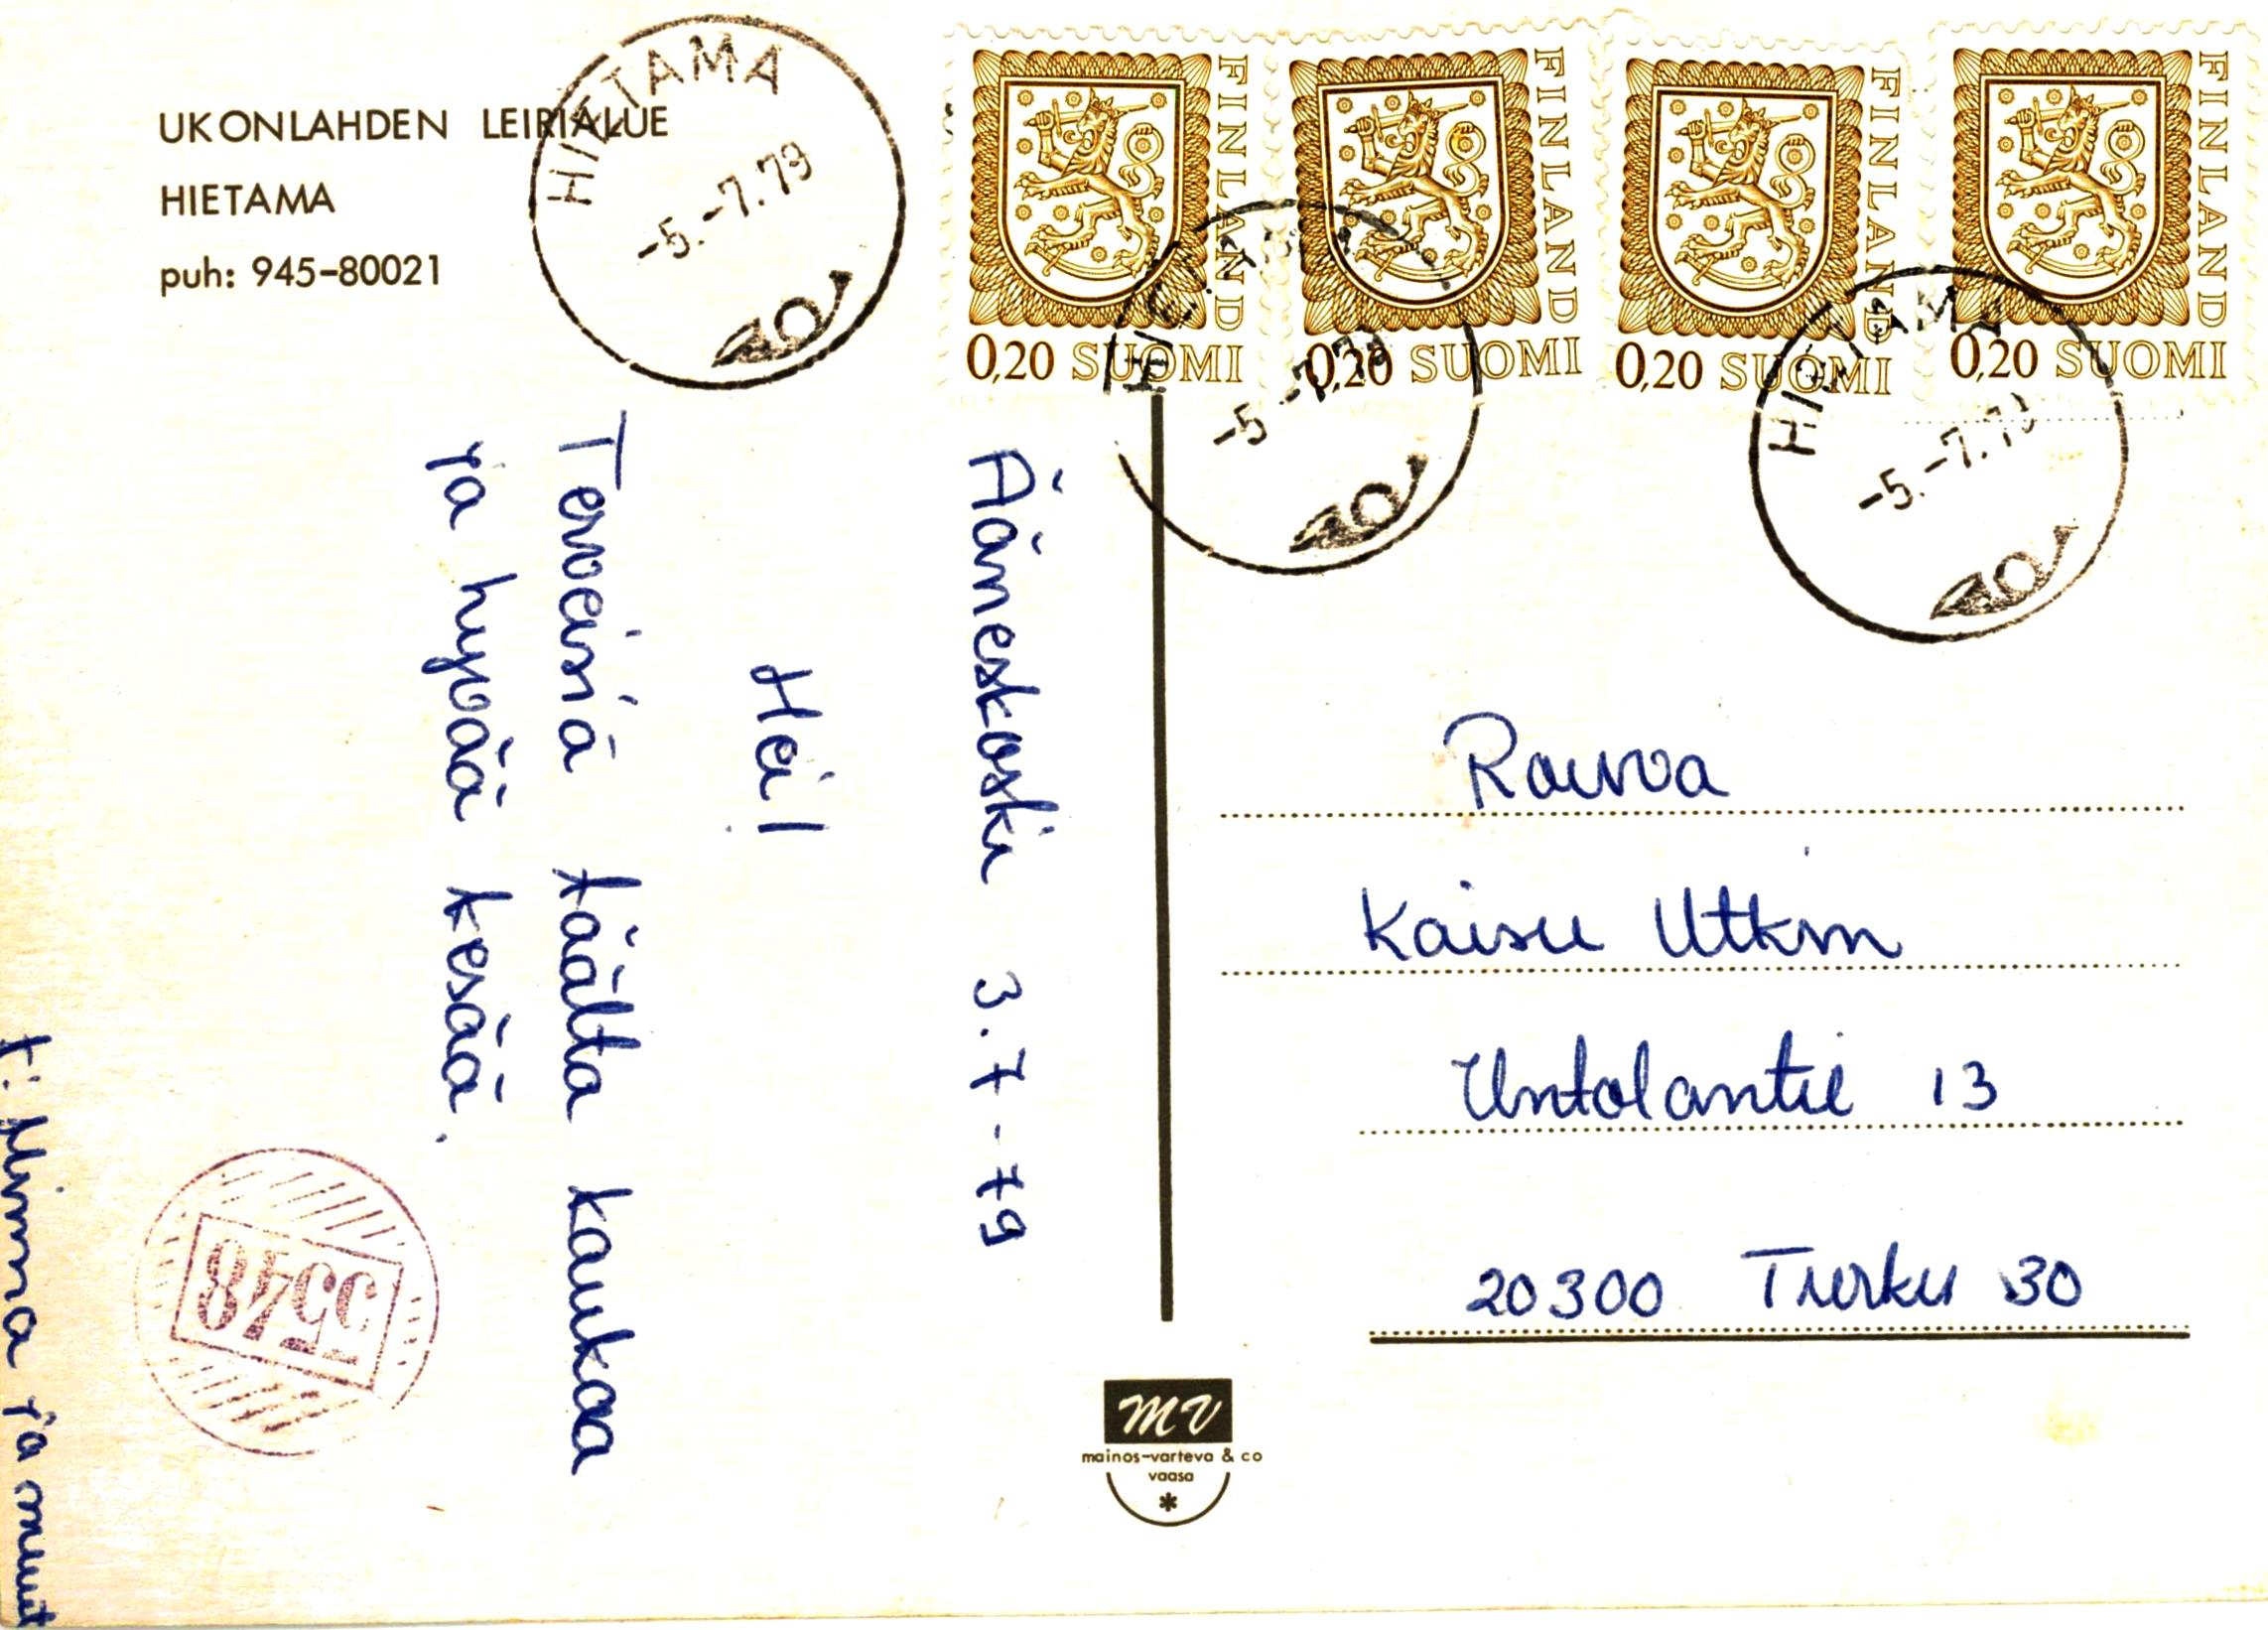 UKONLAHDEN LEIRIALUE
HIETAMA
puh: 945-80021
HIETAMA
-5.-7.79
FINLAND
0,20 SUOMI
FINLAND
0,20 SUOMI
FINLAND
0,20 SUOMI
FINLAND
0,20 SUOMI
HIETAMA
-5.-7.79
HIETAMA
-5.-7.79
Ääneskoski 3.7-79
Hei!
Terveisiä täältä kaukaa
ja hyvää kesää.
t: Minna ja muut
5548
Rouva
Kaisu Utkin
Untolantie 13
20300 Turku 30
MV
mainos-varteva & co
vaasa
*